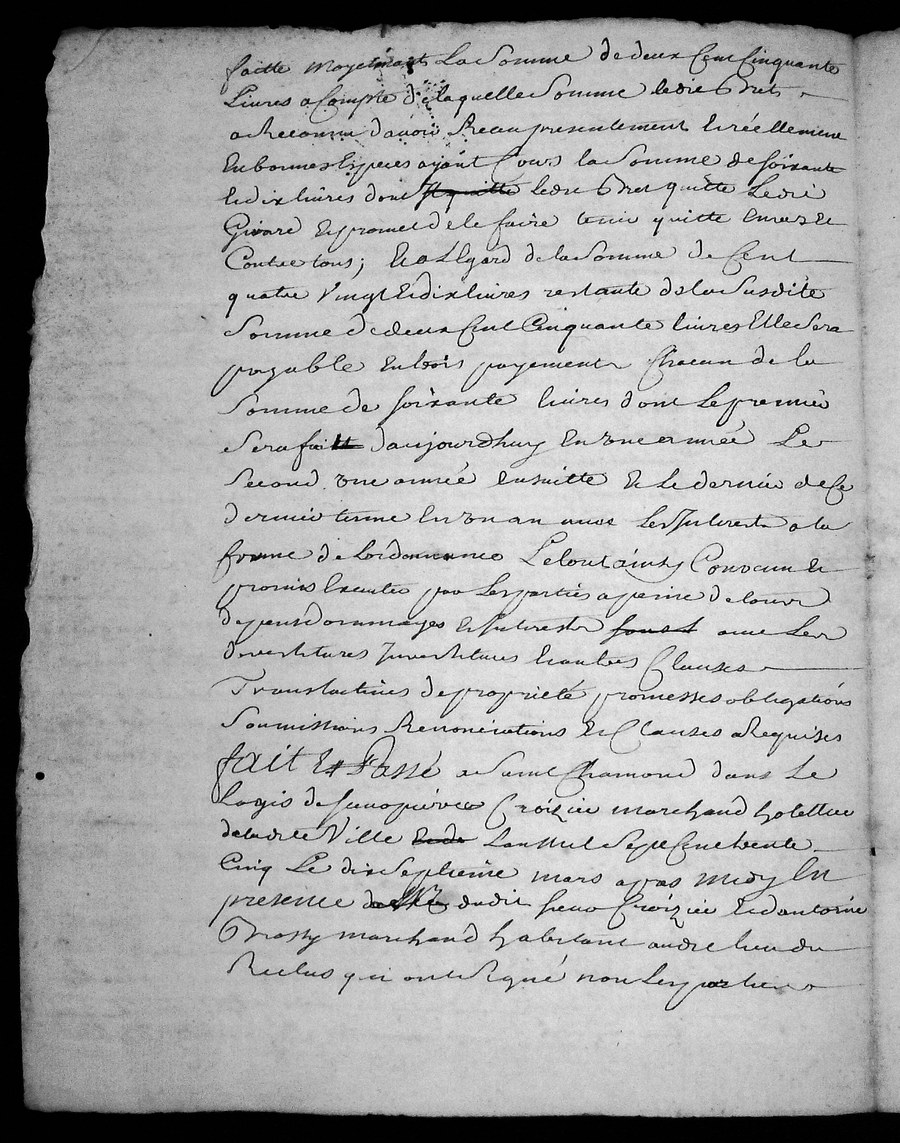 faitte moyennant La Somme de deux Cent Cinquante
Livres a Compte de laquelle Somme ledit Bret
a Reconnu davoir Receu presentement Et réellement
En bonnes Especes ayant Cours la Somme de soixante
Et dix livres dont Il quitte ledit Bret quitte Ledit
Girard Et promet de le faire tenir quitte Envers Et
Contre tous; Et a LEgard de la Somme de Cent
quatre Vingt Et dix livres restante de la Susdite
Somme de deux Cent Cinquante livres Elle Sera
payable En trois payements Chacun de la
Somme de soixante livres dont Le premier
Sera fait daujourdhuy En une année Le
Second une année Ensuitte Et Le dernier de Ce
dernier terme En un an avec Les Interests a la
forme de Lordonnance Le tout ainsy Convenu Et
promis Executer par Les parties a peine de tous
depens dommages Et Interests avec Les
devestitures Investitures Et autres Clauses
Translatives de propriété promesses obligations
Soumissions Renonciations Et Clauses Requises
fait Et Passé a Saint Chamond dans Le
Logis de sieur pierre Croizier marchand hotellier
de ladite Ville Lan Mil Sept Cent trente
Cinq Le dix Septieme mars apres midy En
presence dudit sieur Croizier Et dantoine
Brossy marchand habitant audit lieu du
Reclus qui ont Signé non Les parties